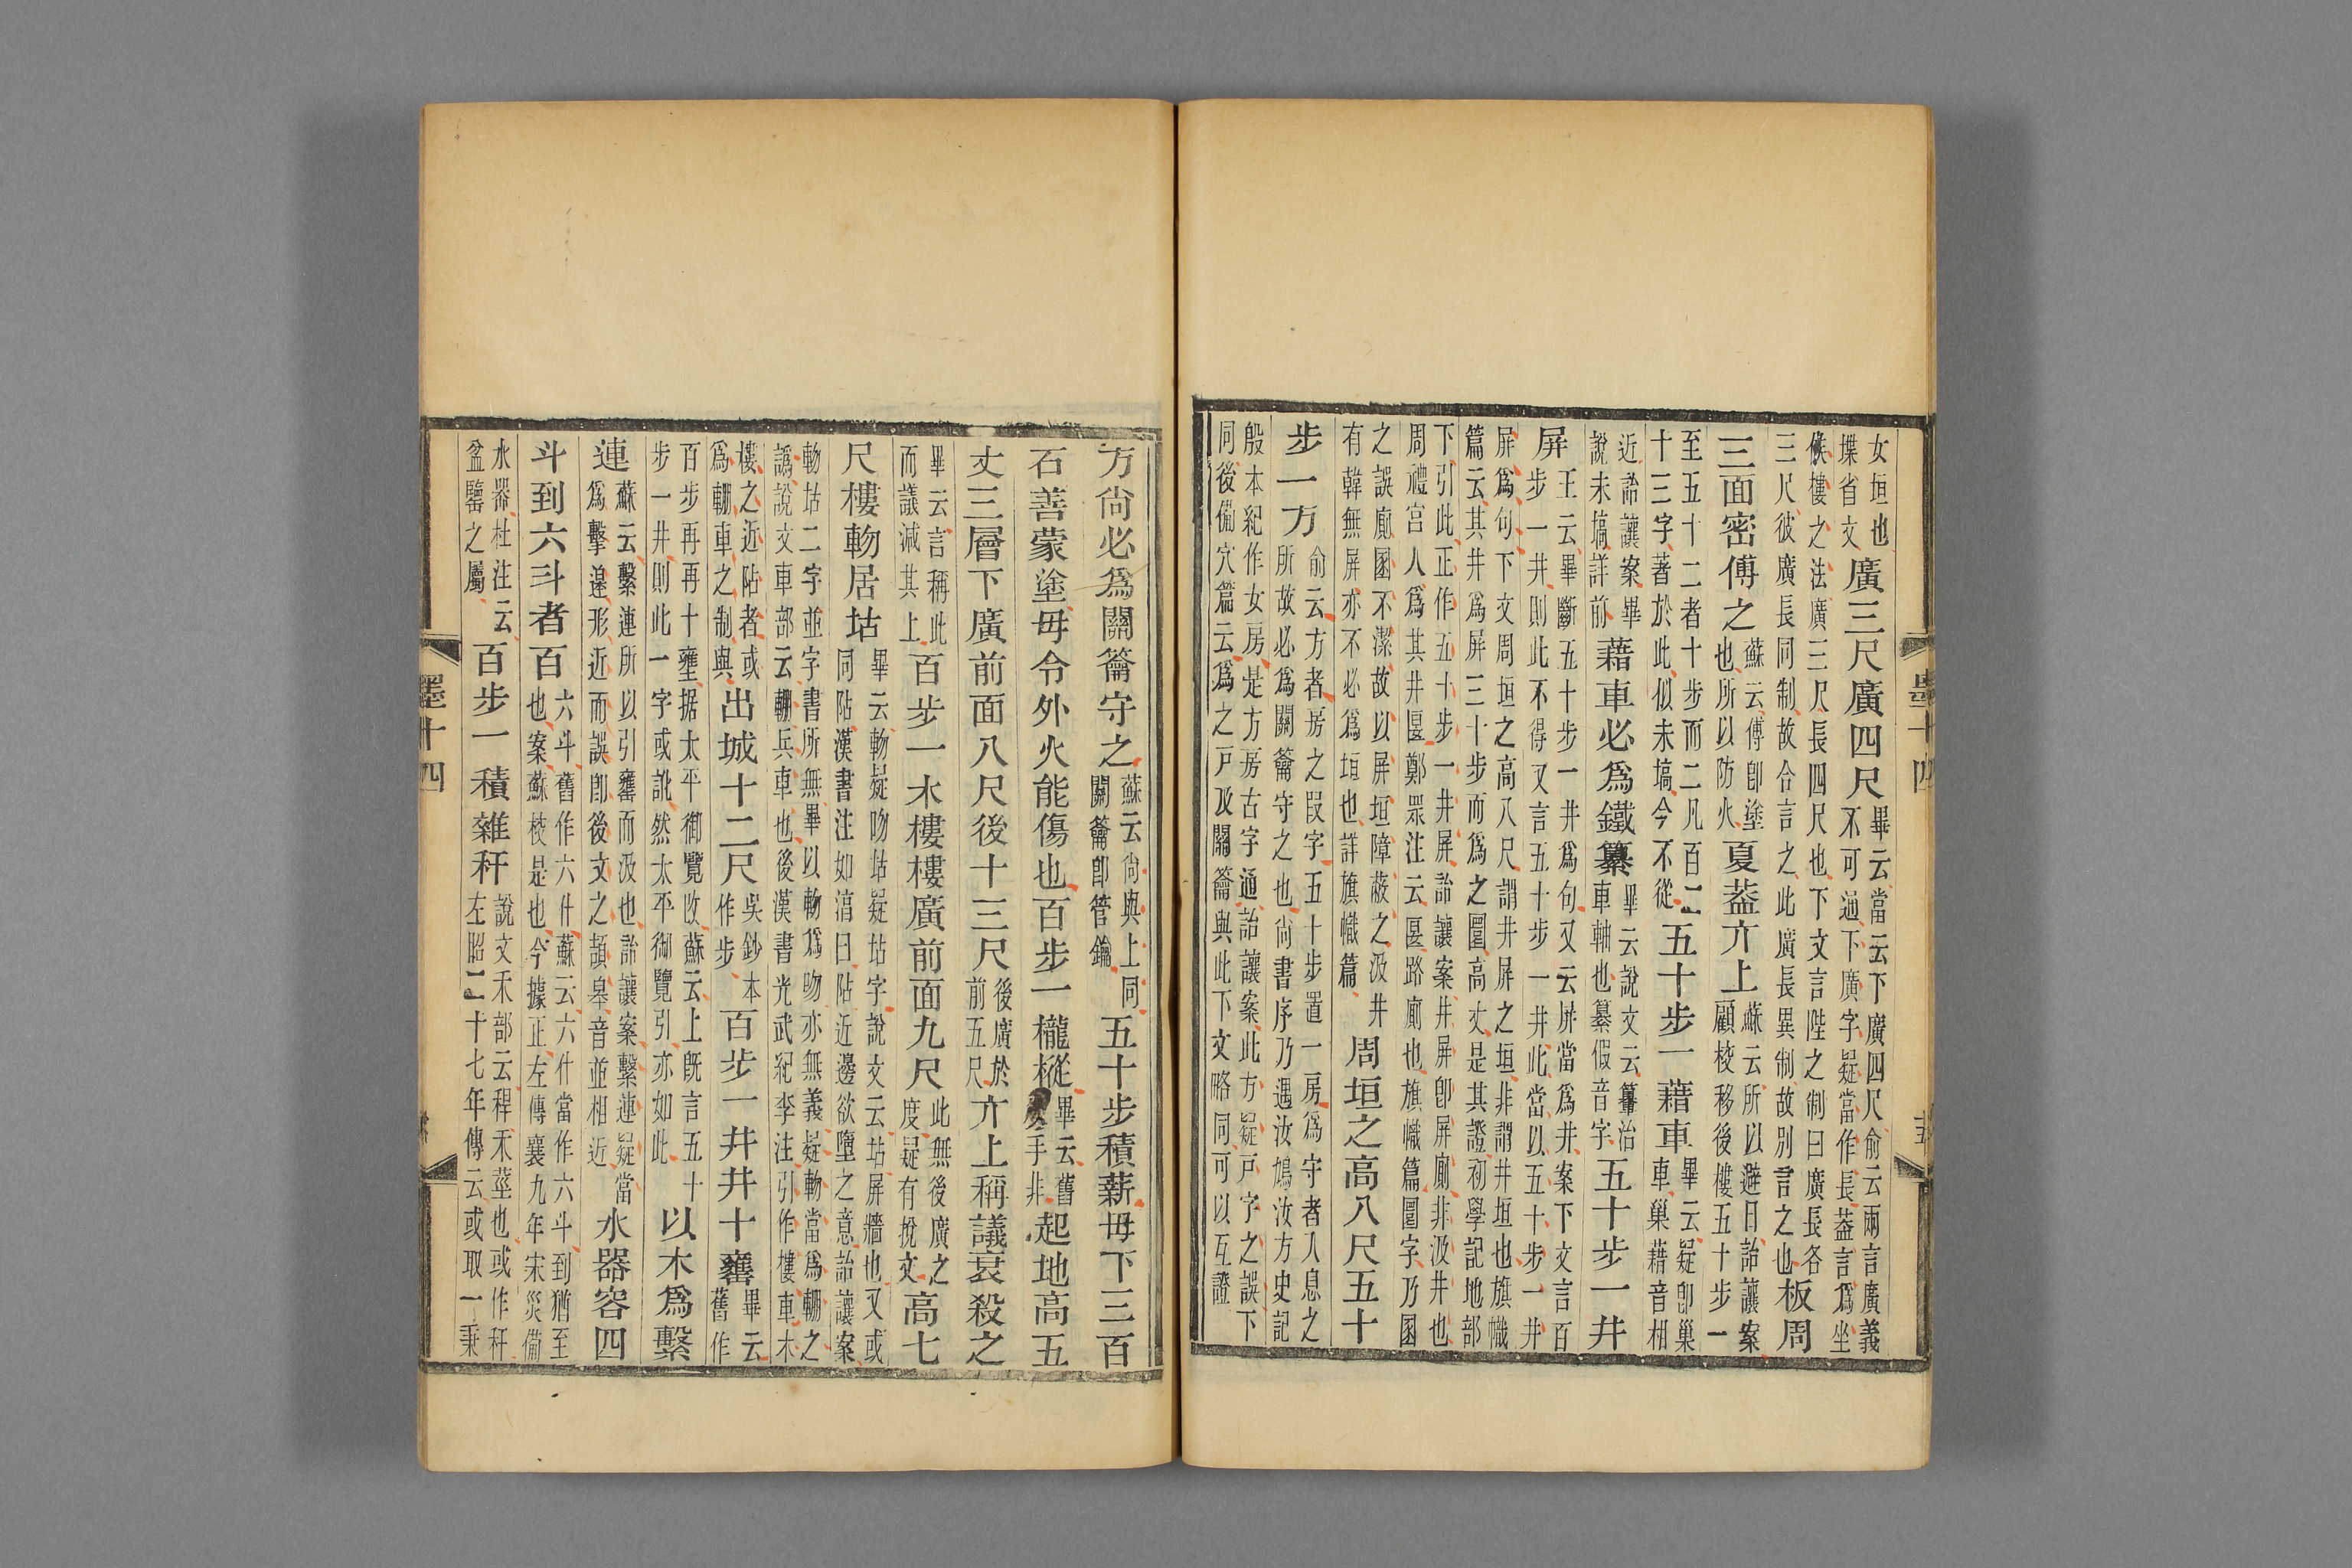 女垣也
堞省文
廣三尺廣四尺
畢云當云下廣四尺俞云兩言廣義
不可通下廣字疑當作長葢言爲坐
候樓之法廣三尺長四尺也下文言陛之制曰廣長各
三尺彼廣長同制故合言之此廣長異制故別言之也
板周
三面密傅之
蘇云傅卽塗
也所以防火
夏葢亣上
蘇云所以避日詒讓案
顧校移後樓五十步一
至五十二者十步而二凡百二
十三字著於此似未塙今不從
五十步一藉車
畢云疑卽巢
車巢藉音相
近詒讓案畢
說未塙詳前
藉車必爲鐵纂
畢云說文云䡅治
車軸也纂假音字
五十步一井
屏
王云畢斷五十步一井爲句又云屏當爲井案下文言百
步一井則此不得又言五十步一井此當以五十步一井
屏爲句下文周垣之高八尺謂井屏之垣非謂井垣也旗幟
篇云其井爲屏三十步而爲之圜高丈是其證初學記地部
下引此正作五十步一井屏詒讓案井屏卽屏廁非汲井也
周禮宮人爲其井匽鄭眾注云匽路廁也旗幟篇圜字乃圂
之誤廁圂不潔故以屏垣障蔽之汲井
有韓無屏亦不必爲垣也詳旗幟篇
周垣之高八尺五十
步一方
俞云方者房之叚字五十步置一房爲守者入息之
所故必爲關籥守之也尙書序乃遇汝鳩汝方史記
殷本紀作女房是方房古字通詒讓案此方疑戶字之誤下
同後備穴篇云爲之戶及關籥與此下文略同可以互證
墨十四
方尙必爲關籥守之
蘇云尙與上同
關籥卽管鑰
五十步積薪毋下三百
石善蒙塗毋令外火能傷也百步一櫳樅
畢云舊
从手非
起地高五
丈三層下廣前面八尺後十三尺
後廣於
前五尺
亣上稱議衰殺之
畢云言稱此
而議減其上
百步一木樓樓廣前面九尺
此無後廣之
度疑有挩文
高七
尺樓軪居坫
畢云軪疑吻坫疑坫字說文云坫屏牆也又或
同阽漢書注如湻曰阽近邊欲墮之意詒讓案
軪坫二字並字書所無畢以軪爲吻亦無義疑軪當爲輣之
譌說文車部云輣兵車也後漢書光武紀李注引作樓車木
樓之近阽者或
爲輣車之制與
出城十二尺
吳鈔本
作步
百步一井井十罋
畢云
舊作
百步再再十壅据太平御覽改蘇云上旣言五十
步一井則此一字或訛然太平御覽引亦如此
以木爲繫
連
蘇云繫連所以引罋而汲也詒讓案繫連疑當
爲擊遑形近而誤卽後文之頡皋音並相近
水器容四
斗到六斗者百
六斗舊作六什蘇云六什當作六斗到猶至
也案蘇校是也今據正左傳襄九年宋災備
水器杜注云
盆鑒之屬
百步一積雜秆
說文禾部云稈禾莖也或作秆
左昭二十七年傳云或取一秉
墨十四